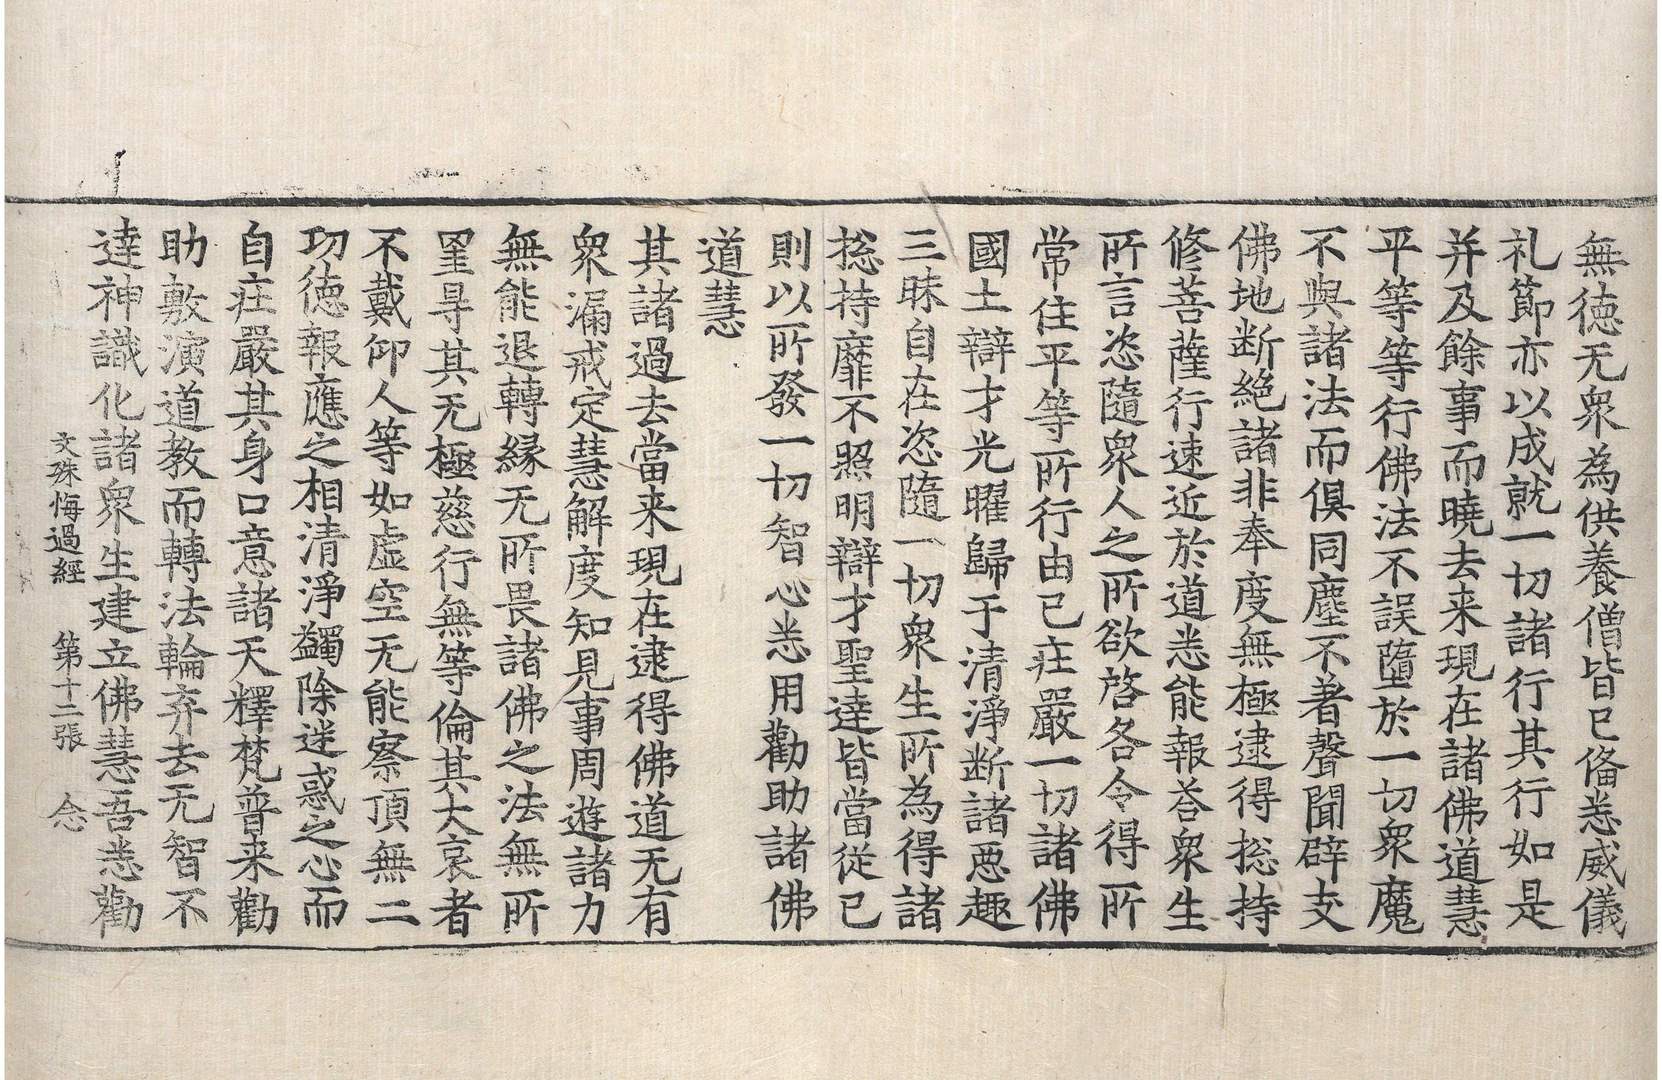 無徳无衆為供養僧皆已偹悉威儀
礼節亦以成就一切諸行其行如是
并及餘事而曉去来現在諸佛道慧
平等等行佛法不誤墮於一切衆魔
不與諸法而俱同塵不著聲聞辟支
佛地断絶諸非奉度無極逮得捴持
修菩薩行速近於道悉能報荅衆生
所言恣隨衆人之所欲啓各令得所
常住平等所行由已莊嚴一切諸佛
國土辯才光曜歸于清淨断諸惡趣
三昧自在恣隨一切衆生所為得諸
捴持靡不照明辯才聖達皆當從已
則以所發一切智心悉用勸助諸佛
道慧
其諸過去當来現在逮得佛道无有
衆漏戒定慧解度知見事周遊諸力
無能退轉縁无所畏諸佛之法無所
罣㝵其无極慈行無等倫其大哀者
不戴仰人等如虛空无能察頂無二
功徳報應之相清淨蠲除迷惑之心而
自莊嚴其身口意諸天釋梵普来勸
助敷演道教而轉法輪弃去无智不
達神識化諸衆生建立佛慧吾悉勸
文殊悔過經　第十二張　念